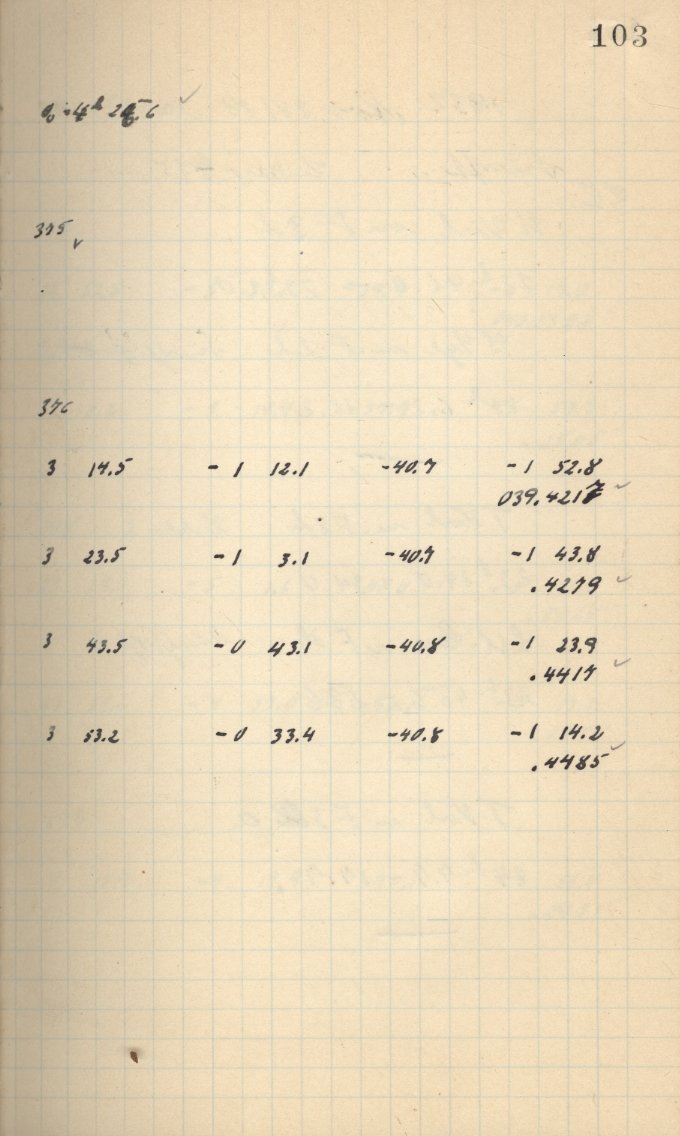 103
θ₀ = 4ʰ 25.6 ✓
375 ✓
376
3 14.5 - 1 12.1 -40.7 - 1 52.8
039.4217 ✓
3 23.5 - 1 3.1 -40.7 - 1 43.8
.4279 ✓
3 43.5 - 0 43.1 -40.8 - 1 23.9
.4417 ✓
3 53.2 - 0 33.4 -40.8 - 1 14.2
.4485 ✓